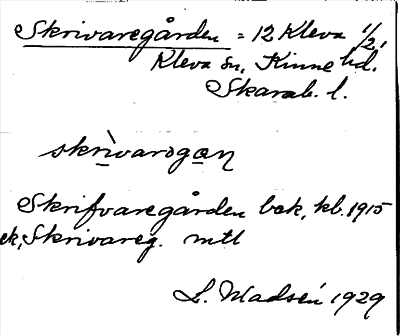 Skrivaregården = 12 Kleva 1/2,
Kleva sn, Kinne hd.
Skarab. l.
skrìvarəgɑn
Skrifvaregården bek, kb. 1915
ek, Skrivareg. mtl
L. Madsén 1929